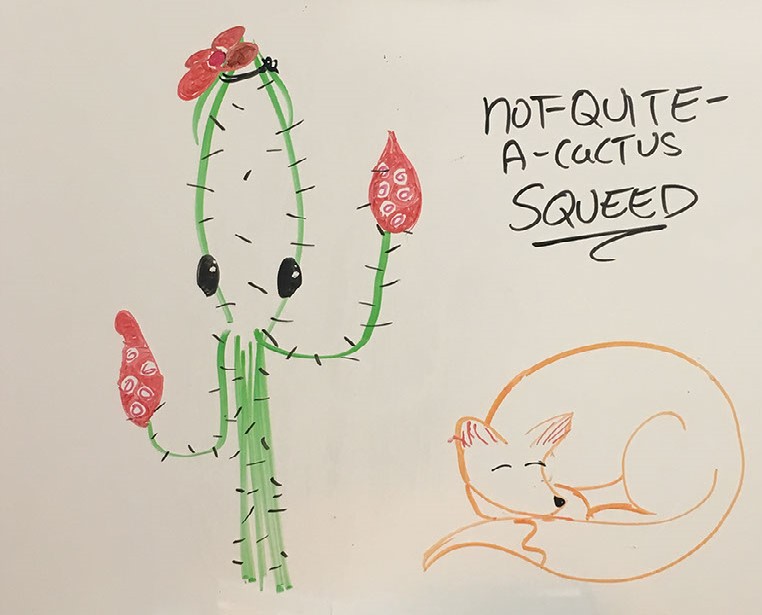 NOT-QUITE-
A-CACTUS
SQUEED